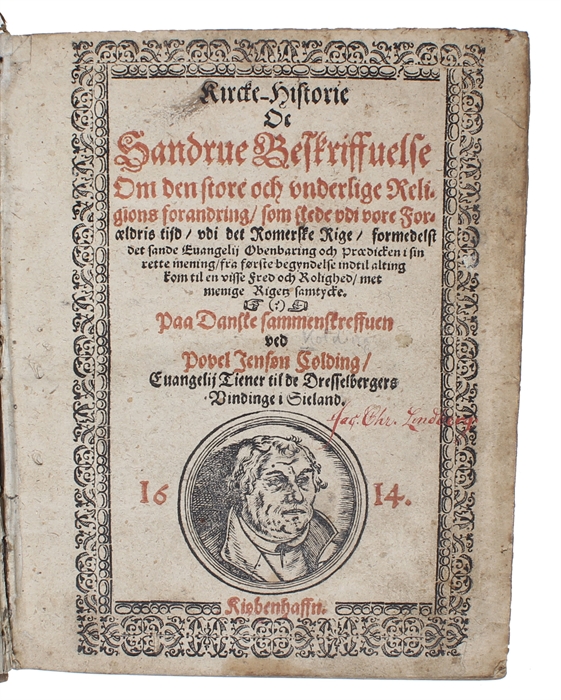 Kircke-Historie
Oc
Sandrue Beskriffuelse
Om den store och vnderlige Reli-
gions forandring/ som skede vdi vore For-
ældris tijd/ vdi det Romerske Rige/ formedelst
det sande Euangelij Obenbaring och Prædicken i sin
rette mening/ fra første begyndelse indtil alting
kom til en visse Fred och Rolighed/ met
menige Rigetz samtycke.
☞ (:) ☜
Paa Danske sammenskreffuen
ved
Povel Jensøn Colding/
Euangelij Tiener til de Dresselbergers
Vindinge i Sieland.
Jac. Chr. Lindberg
1614.
Kiøbenhaffn.